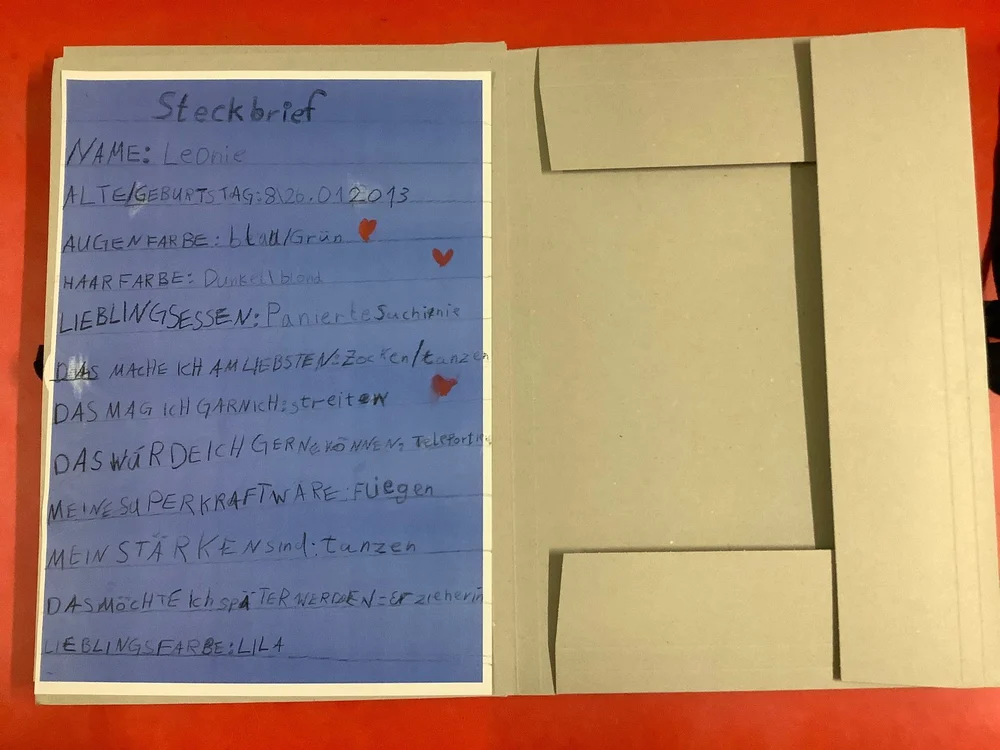 Steckbrief
NAME: Leonie
ALTE/GEBURTSTAG:8\26.012013
AUGENFARBE: blau/Grün
HAARFARBE: Dunkellblond
LIEBLINGSESSEN: Panierte Suchinie
DAS MACHE ICH AM LIEBSTEN: Zocken/tanzen
DAS MAG ICH GARNICH: streiten
DAS WÜRDE ICH GERNE KÖNNEN:
MEINE SUPERKRAFT WÄRE: Fliegen
MEIN STÄRKEN sind: tanzen
DAS MÖCHTE Ich SPÄTER WERDEN = Erzieherin
LIEBLINGSFARBE: LILA